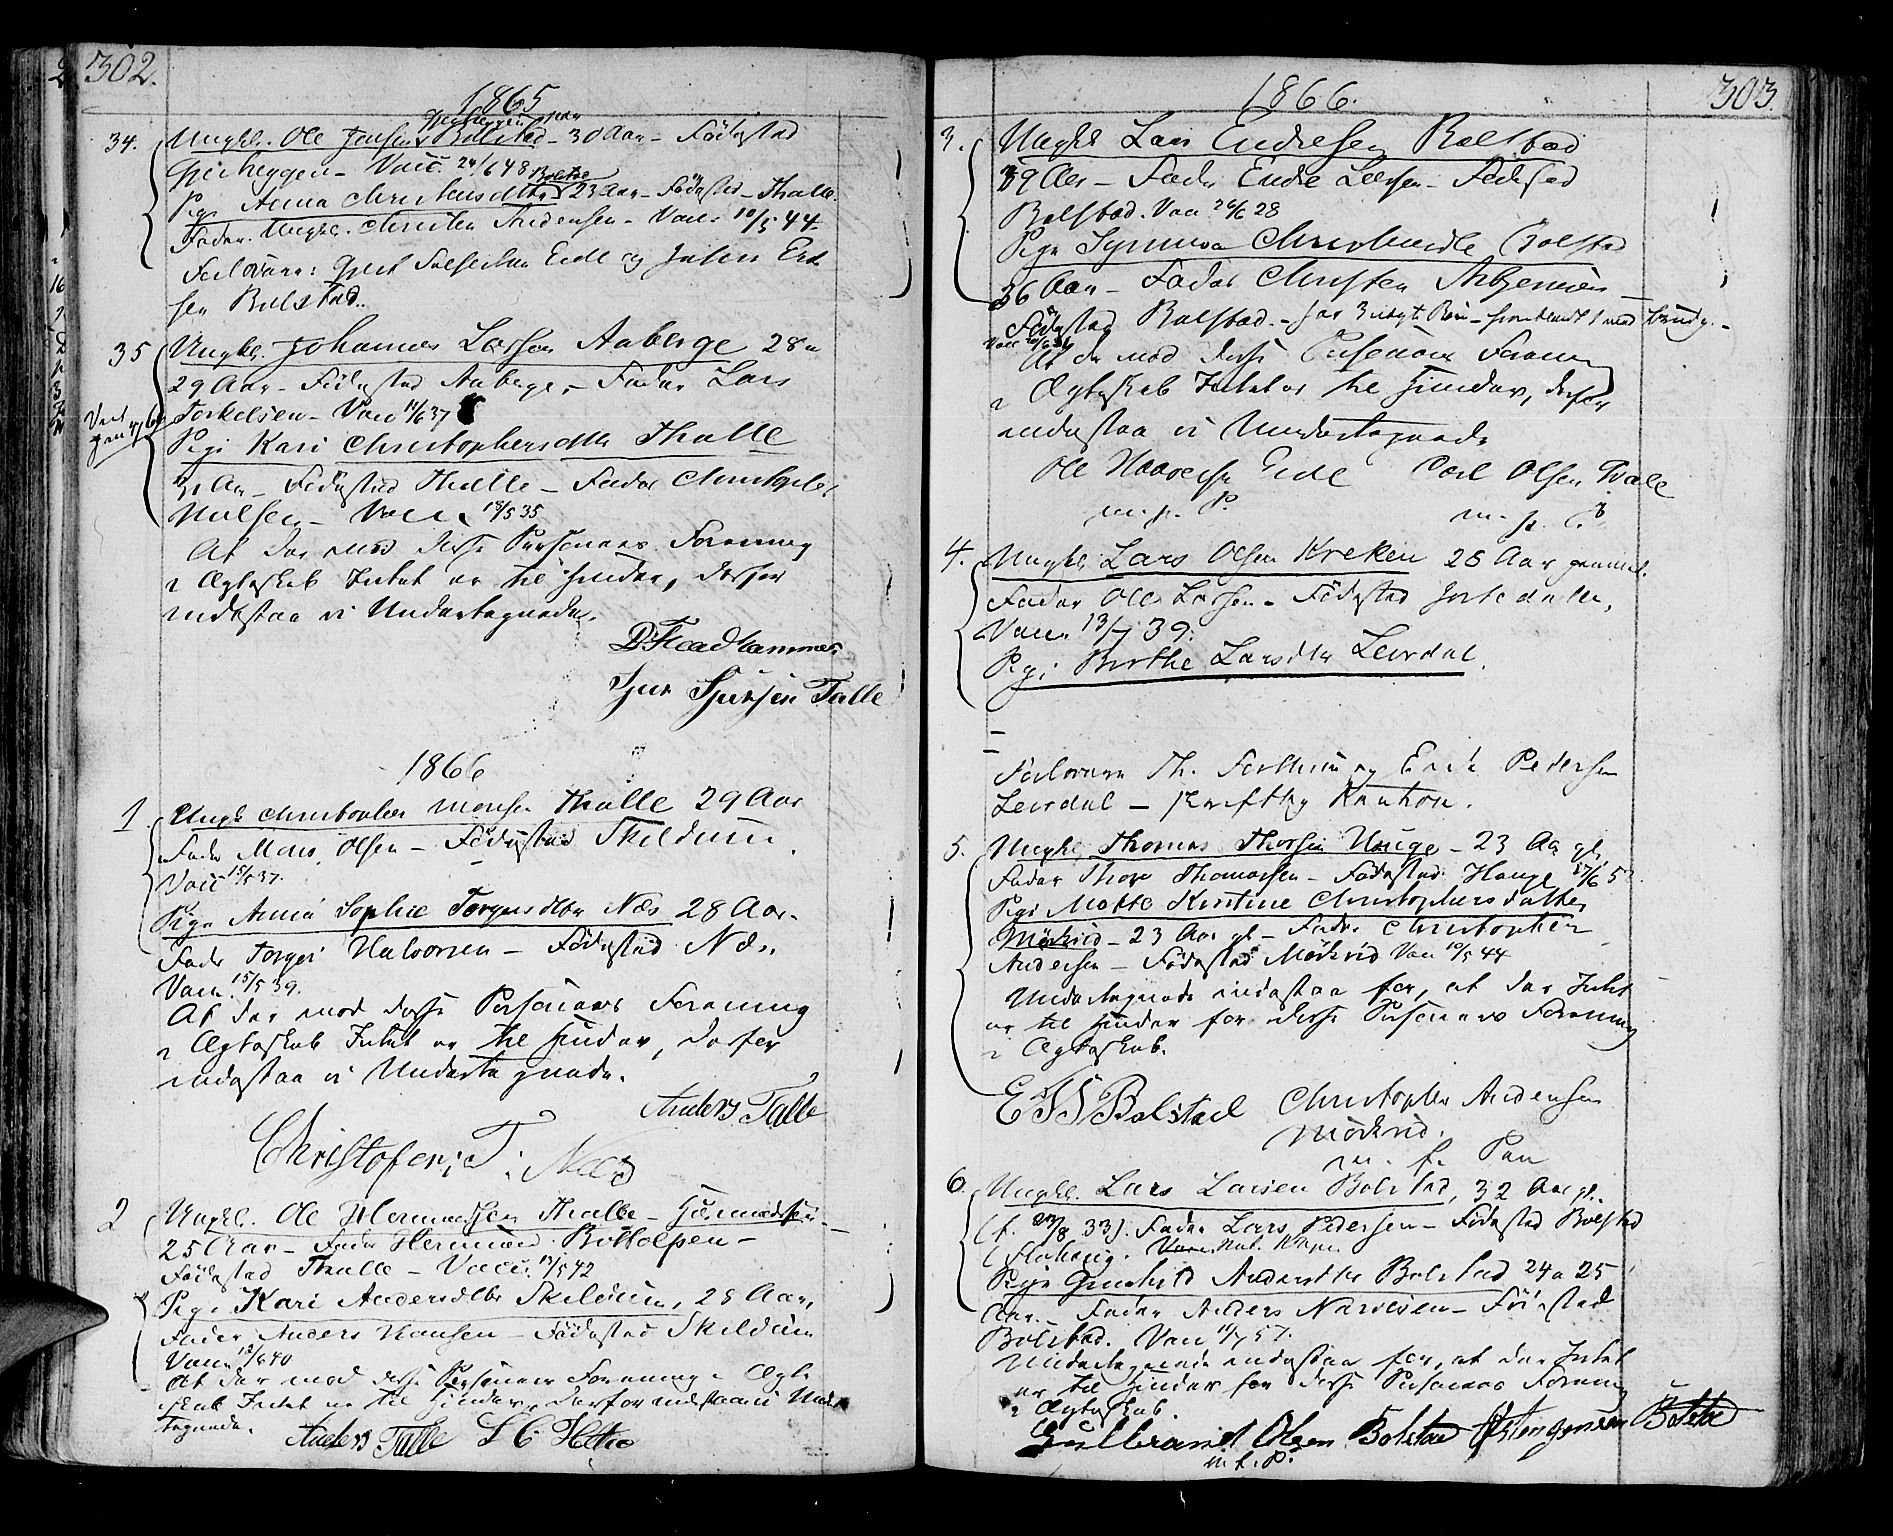 302.
1865
34. Ungkl. Ole Jensen Bolstad - 30 Aar - Fødested
Gjerheggen - Vacc. 24/6 48
Pige Anna Christensdtr 23 Aar - Fødested - Thalle
Fader. Ungkl. Christen Andersen - Vacc. 10/5 44
Forlovere: Gjert Eide og Jens
sen Bolstad.
35 Ungkl. Johannes Larsen Aaberge 28 a
29 Aar - Fødested Aaberge - Fader Lars
Torkelsen - Vacc 11/6 37
Pige Kari Christophersdtr Thalle
31 Aar - Fødested Thalle - Fader Christopher
Nielsen - Vacc. 18/5 35
At der mod disse Personers Forening
i Ægteskab Intet er til Hinder, derfor
indestaa vi Undertegnede.
D Haadhammer
Sjur Sjursen Talle
1866
1 Ungk Christopher Monsen Thalle 29 Aar
Fader Mons Olsen - Fødested Skildum.
Vacc 15/5 37.
Pige Anna Sophie Torgersdtr Næs 28 Aar.
Fader Torger Halvorsen - Fødested Næs
Vacc. 15/5 39.
At der mod disse Personers Forening
i Ægteskab Intet er til Hinder, derfor
indestaa vi Undertegnede.
Anders Talle
Christofer T. Næs
2 Ungkl. Ole Hermundsen Thalle - Huusmandssøn -
25 Aar - Fader Hermund Bottolfsen -
Fødested Thalle - Vacc. 13/5 42
Pige Kari Andersdtr Skildum, 28 Aar,
Fader Anders Hansen - Fødested Skildum
Vacc 12/6 40
At der mod disse Personers Forening i Ægte
skab Intet er til Hinder, derfor indestaa vi Under
tegnede.
Anders Talle
303.
1866.
3. Ungkl Lars Endresen Bolstad
39 Aar - Fader Endre Larsen - Fødested
Bolstad. Vacc 26/6 28
Pige Synneva Christensdtr Bolstad
36 Aar - Fader Christen
Fødested Bolstad. - har 3 uægte Børn
At der mod disse Personers Forening
i Ægteskab Intet er til Hinder, derfor
indestaa vi Undertegnede
Ole Haavelsen Eide Carl Olsen Talle
m. p. P.
4. Ungkl. Lars Olsen Kreken 25 Aar gammel.
Fader Ole Larsen - Fødested Jostedalen,
Vacc. 13/7 39.
Pige Birthe Larsdtr Leirdal.
Forlovere Th. Forthun og Erik Pedersen
Leirdal - skriftlig Kaution.
5. Ungkl. Thomas Thorsen Hauge - 23 Aar gl.
Fader Thore Thomassen - Fødested Hauge
Pige Mette Kirstine Christophersdatter
Mørkrid - 23 Aar gl - Fader Christopher
Andersen - Fødested Mørkrid Vacc 10/5 44
Undertegnede indestaa for, at der Intet
er til Hinder for disse Personers Forening
i Ægteskab.
Bolstad Christopher Andersen
Mørkrid.
m. f. Pen
6. Ungkl. Lars Larsen Bolstad, 32 Aar gl.
(f. 23/8 33). Fader Lars Pedersen - Fødested Bolstad
Pige Gunhild Andersdtr Bolstad 24 a 25
Aar. - Fader Anders - Fødested
Bolstad. Vacc 11/7 57.
Undertegnede indestaa for, at der Intet
er til Hinder for disse Personers Forening
i Ægteskab.
Gulbrand Olsen Bolstad Østen Jensen Bolstad
m. f. P.